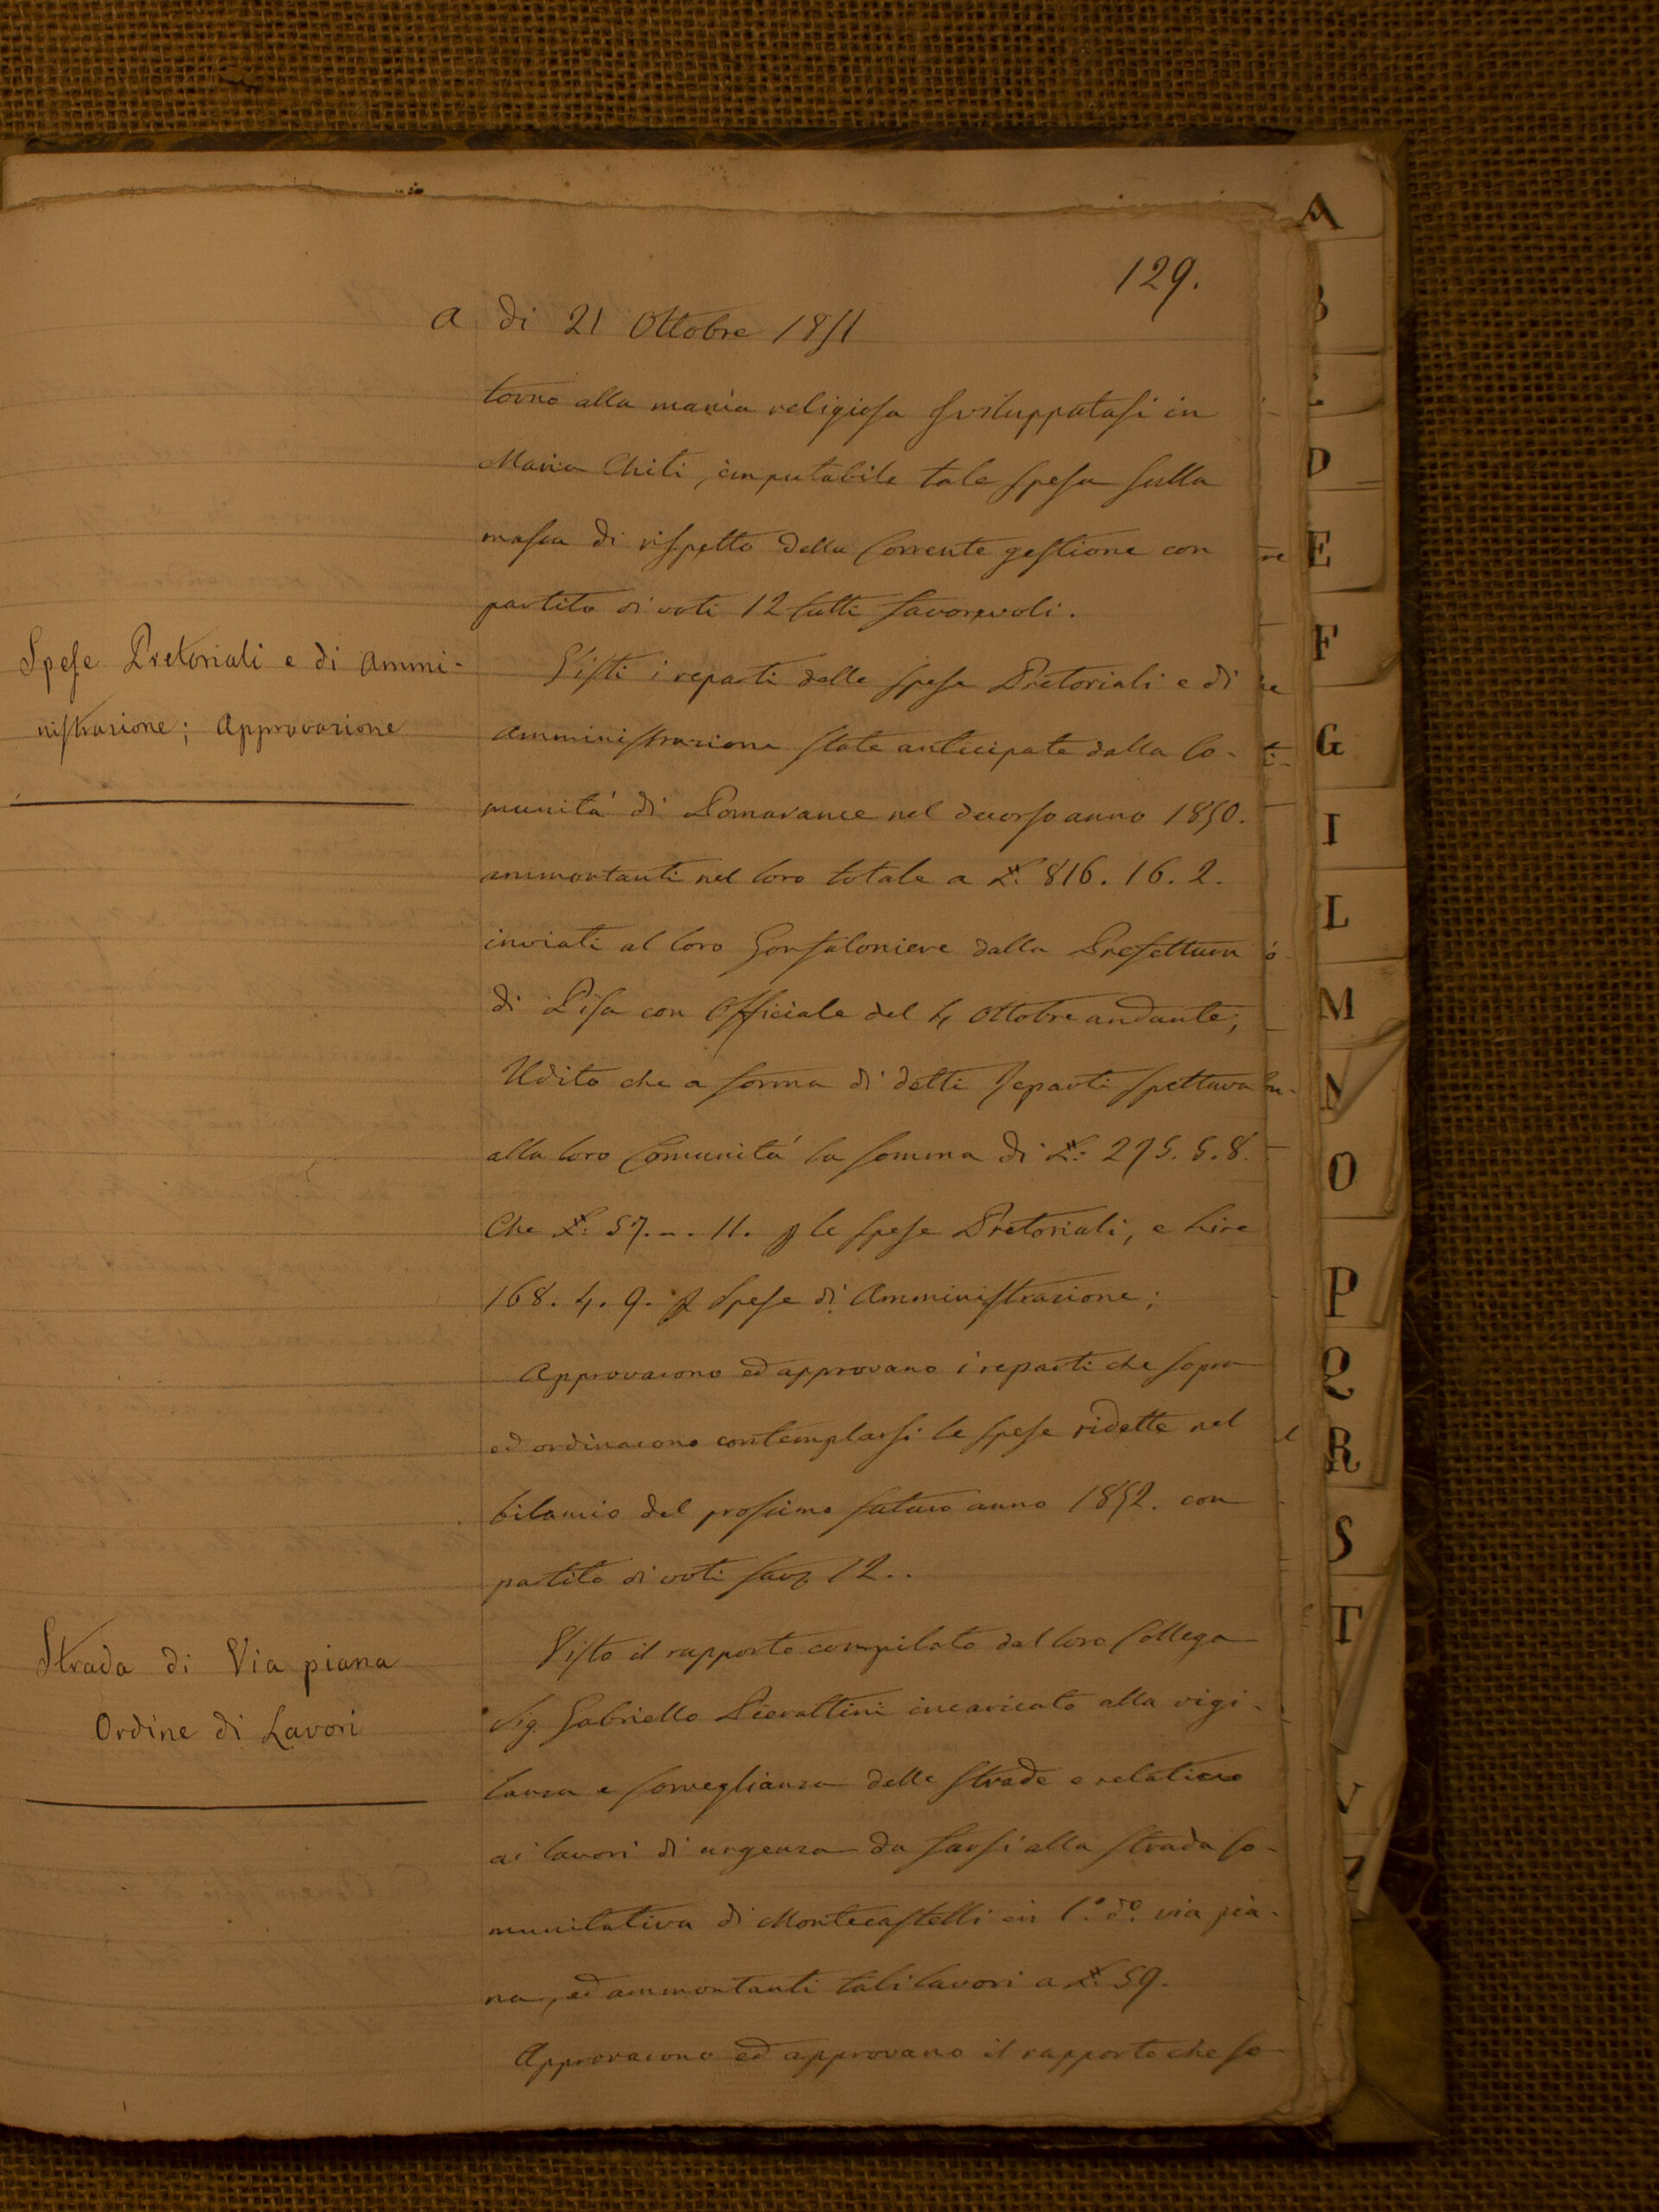 129.
a di 21 Ottobre 1851
torno alla mania religiosa sviluppatasi in
Maria Chiti, imputabile tale spesa sulla
massa di rispetto della Corrente gestione con
partito di voti 12 tutti favorevoli.
Spese Pretoriali e di Ammi-
nistrazione; Approvazione
Visti i reparti delle spese Pretoriali e di
Amministrazione state anticipate dalla Co-
munità di Pomarance nel decorso anno 1850.
ammontanti nel loro totale a £. 816. 16. 2.
inviati al loro Gonfaloniere dalla Prefettura
di Pisa con Officiale del 4 Ottobre andante;
Udito che a forma di detti reparti spettava
alla loro Comunità la somma di £: 225. 5. 8.
Che £. 57. -. 11. p le spese Pretoriali, e Lire
168. 4. 9. p Spese di Amministrazione;
Approvarono ed approvano i reparti che sopra
ed ordinarono contemplarsi le spese ridette nel
bilancio del prossimo futuro anno 1852. con
partito di voti fav 12..
Strada di Via piana
Ordine di Lavori
Visto il rapporto compilato dal loro Collega
Sig. Gabriello Pierattini incaricato alla vigi-
lanza e sorveglianza delle strade e relativo
ai lavori di urgenza da farsi alla strada Co-
munitativa di Montecastelli in l.o d.o via pia-
na, ed ammontanti tali lavori a £. 59.
Approvarono ed approvano il rapporto che so
A
B
D
E
F
G
I
L
M
N
O
P
Q
R
S
T
V
Z